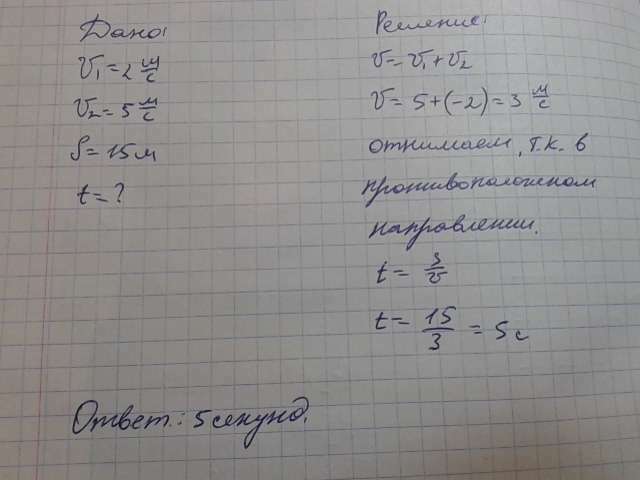 Дано:
V₁ = 2 м/с
V₂ = 5 м/с
S = 15 м
t = ?
Решение:
V = V₁ + V₂
V = 5 + (-2) = 3 м/с
отнимаем, т.к. в
противоположном
направлении.
t = S/V
t = 15/3 = 5 с
Ответ: 5 секунд.